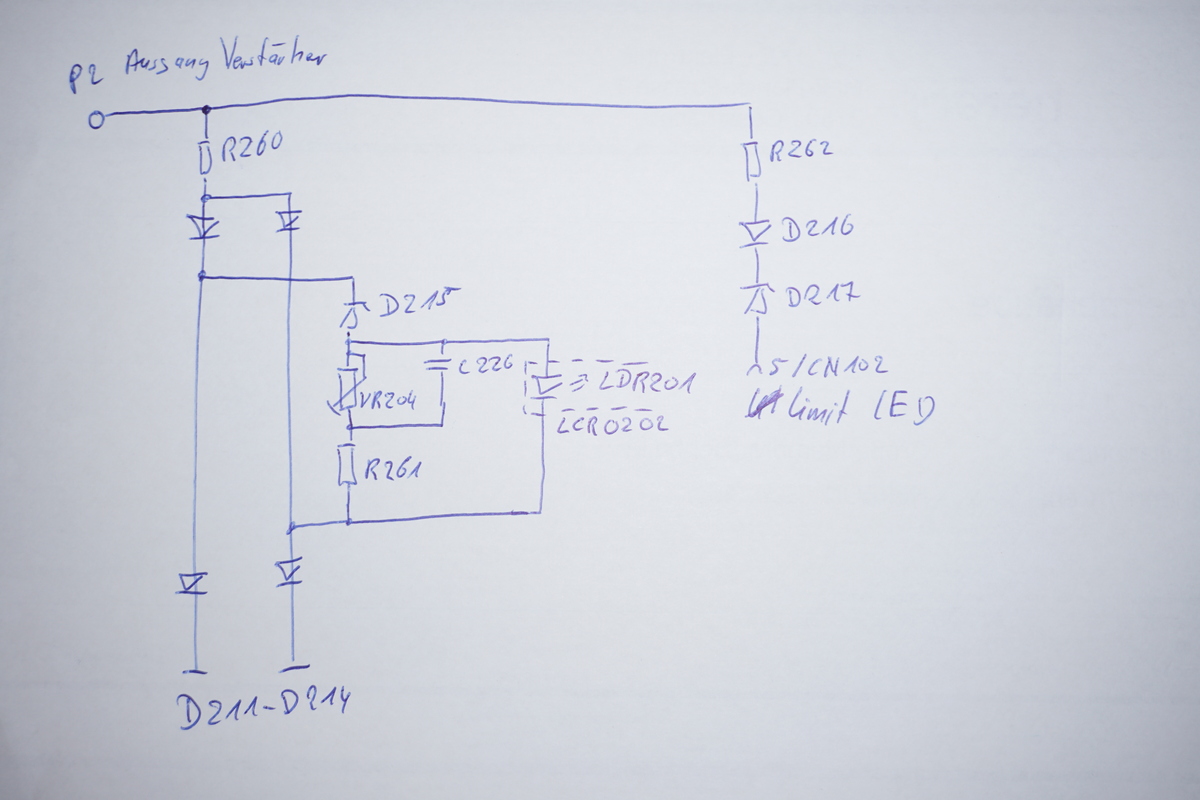 P2 Ausgang Verstärker
R260
R262
D216
D215
D217
C226
LDR201
VR204
LCR0202
5/CN102
Limit LED
R261
D211-D214